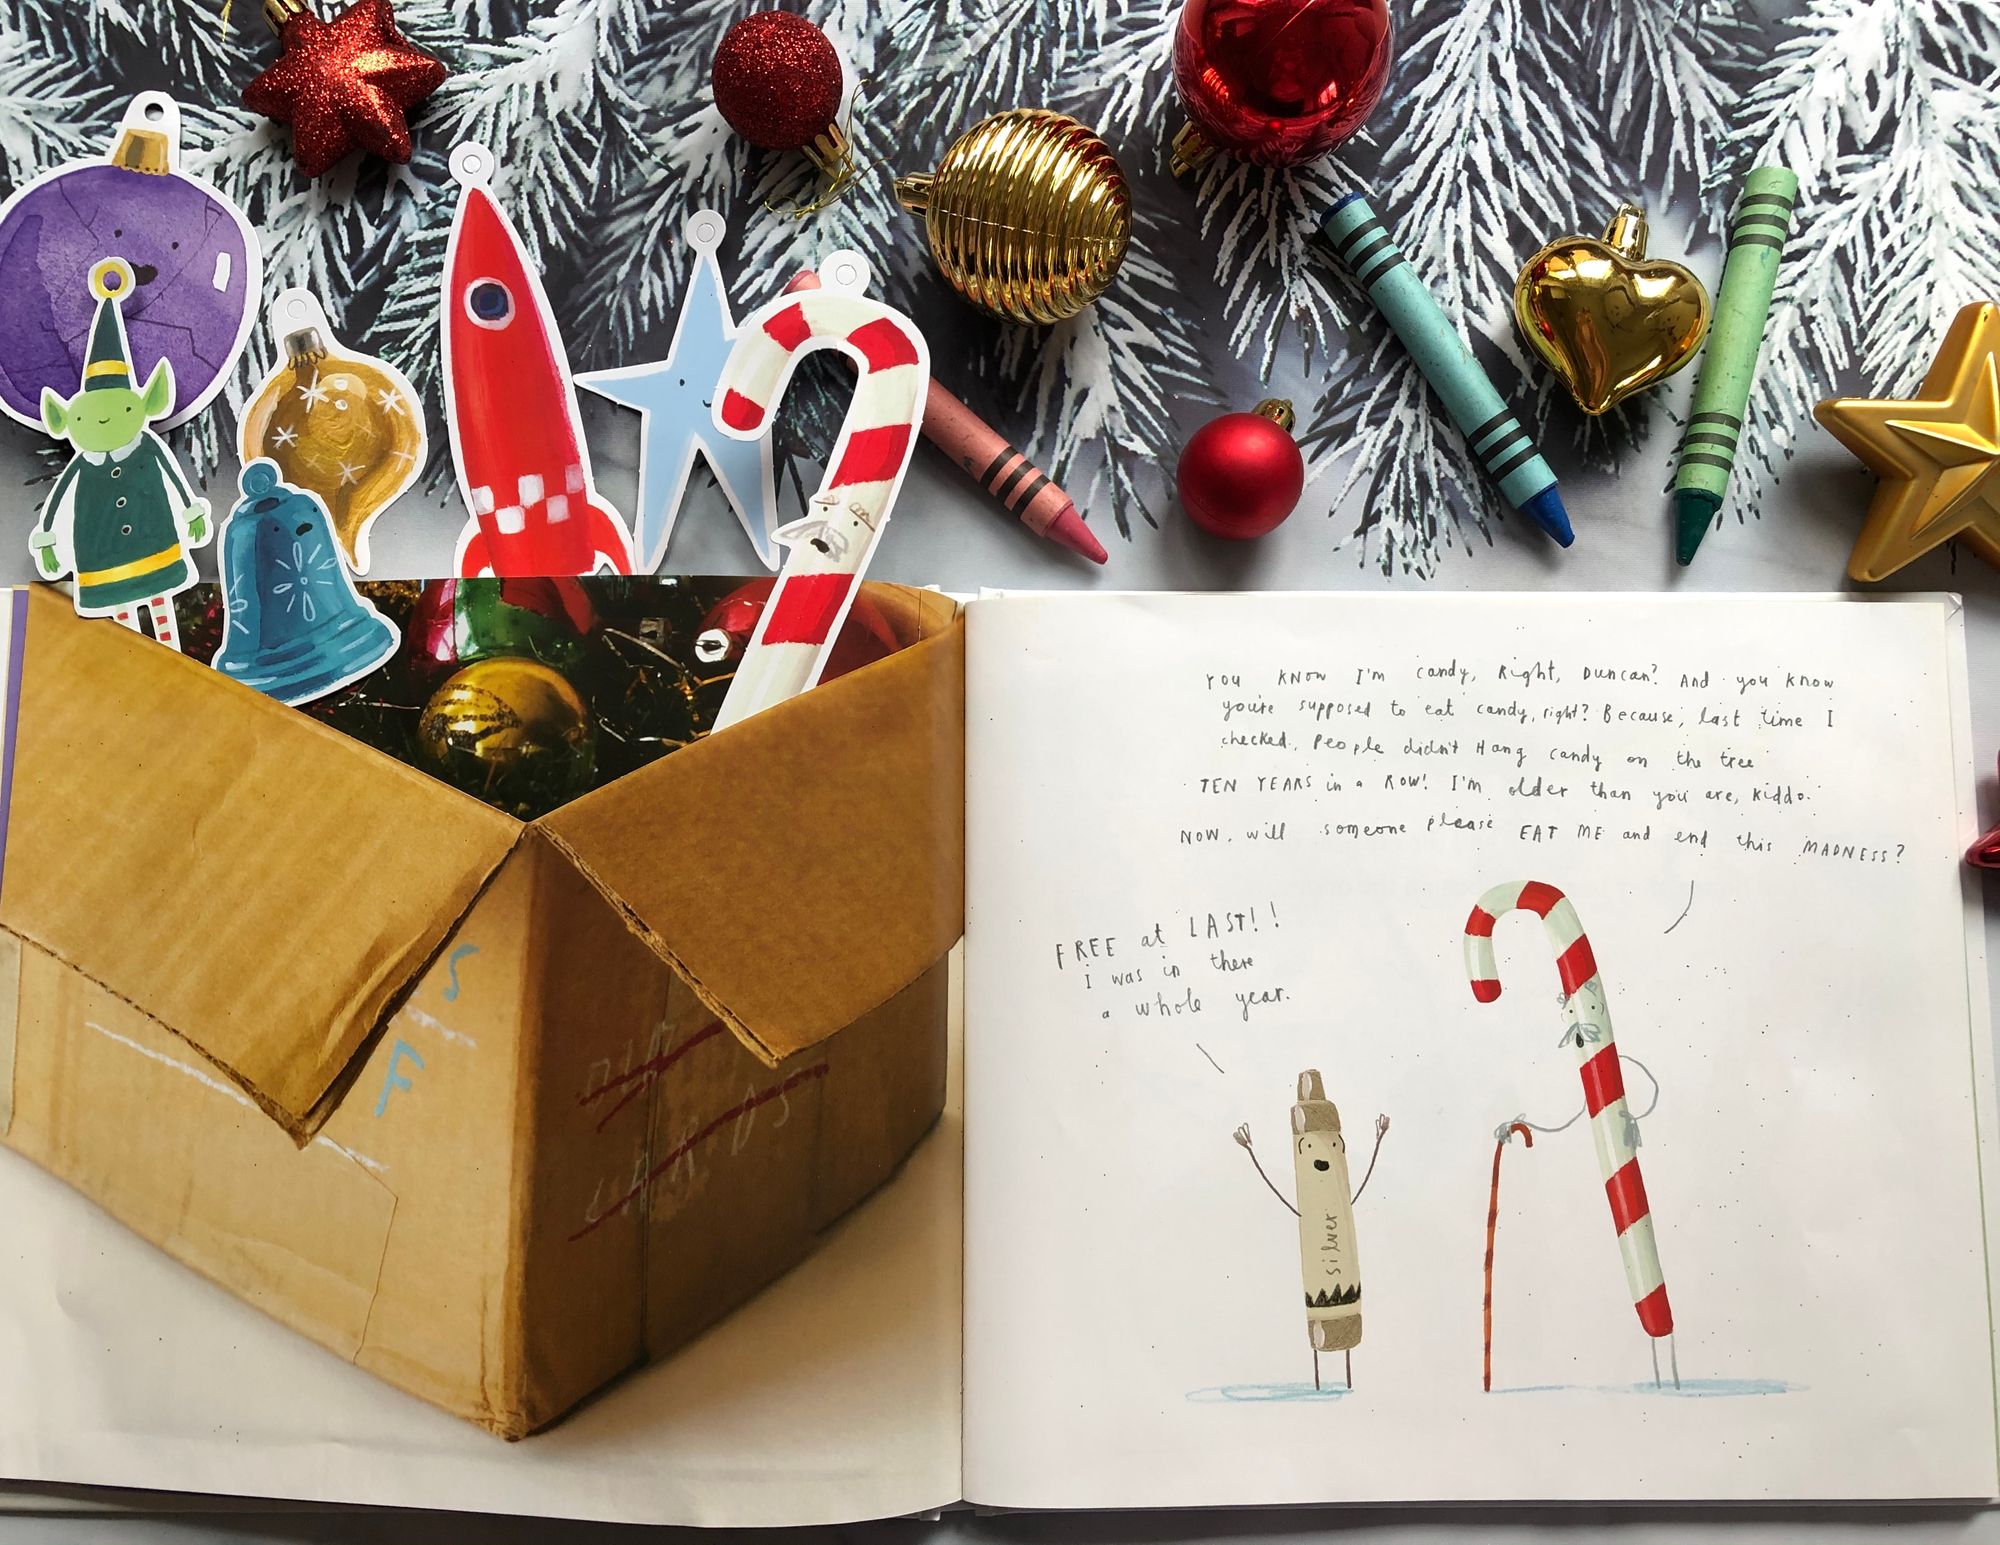 YOU KNOW I'm candy, Right, Duncan? And you know
you're supposed to eat candy, right? Because, last time I
checked, People didn't Hang candy on the tree
TEN YEARS in a ROW! I'm older than you are, Kiddo.
NOW, will someone please EAT ME and end this MADNESS?
FREE at LAST!!
I was in there
a whole year.
silver
S
F
CARDS